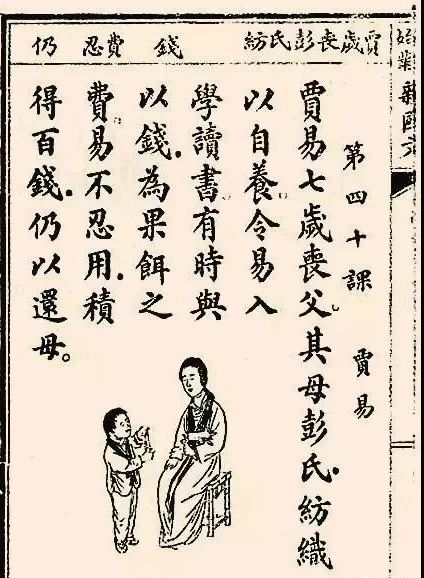 新國文
賈歲喪彭氏紡 錢 費忍 仍
第四十課 賈易
賈易七歲喪父。其母彭氏。紡織
以自養。令易入
學讀書。有時與
以錢。為果餌之
費。易不忍用。積
得百錢。仍以還母。